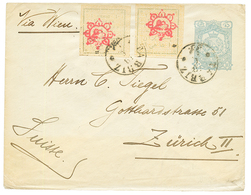 Via Wien.
TAURIZ
Herrn C. Siegel
Gotthardstrasse 51
Zürich II.
Suisse